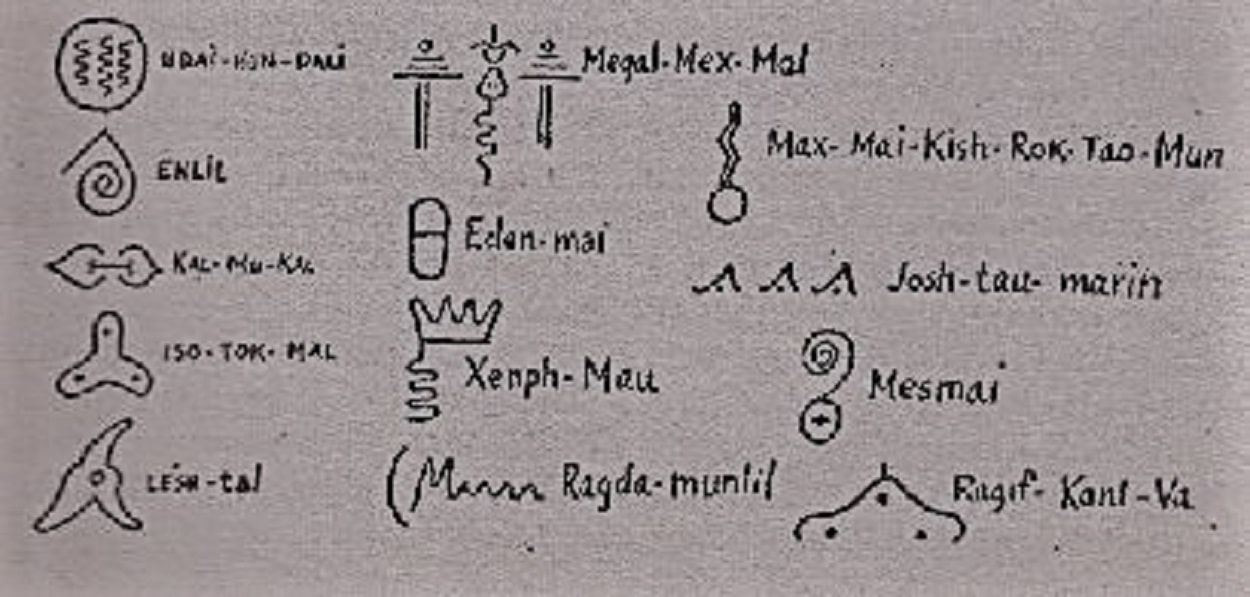 Megal-Mex-Mal
Max-Mai-Kish-Rok-Tao-Mun
ENLIL
Eden-mai
KAL-MU-KAL
Josh-tau-marin
ISO-TOK-MAL
Xenph-Mau
Mesmai
LESH-tal
Ragda-muntil